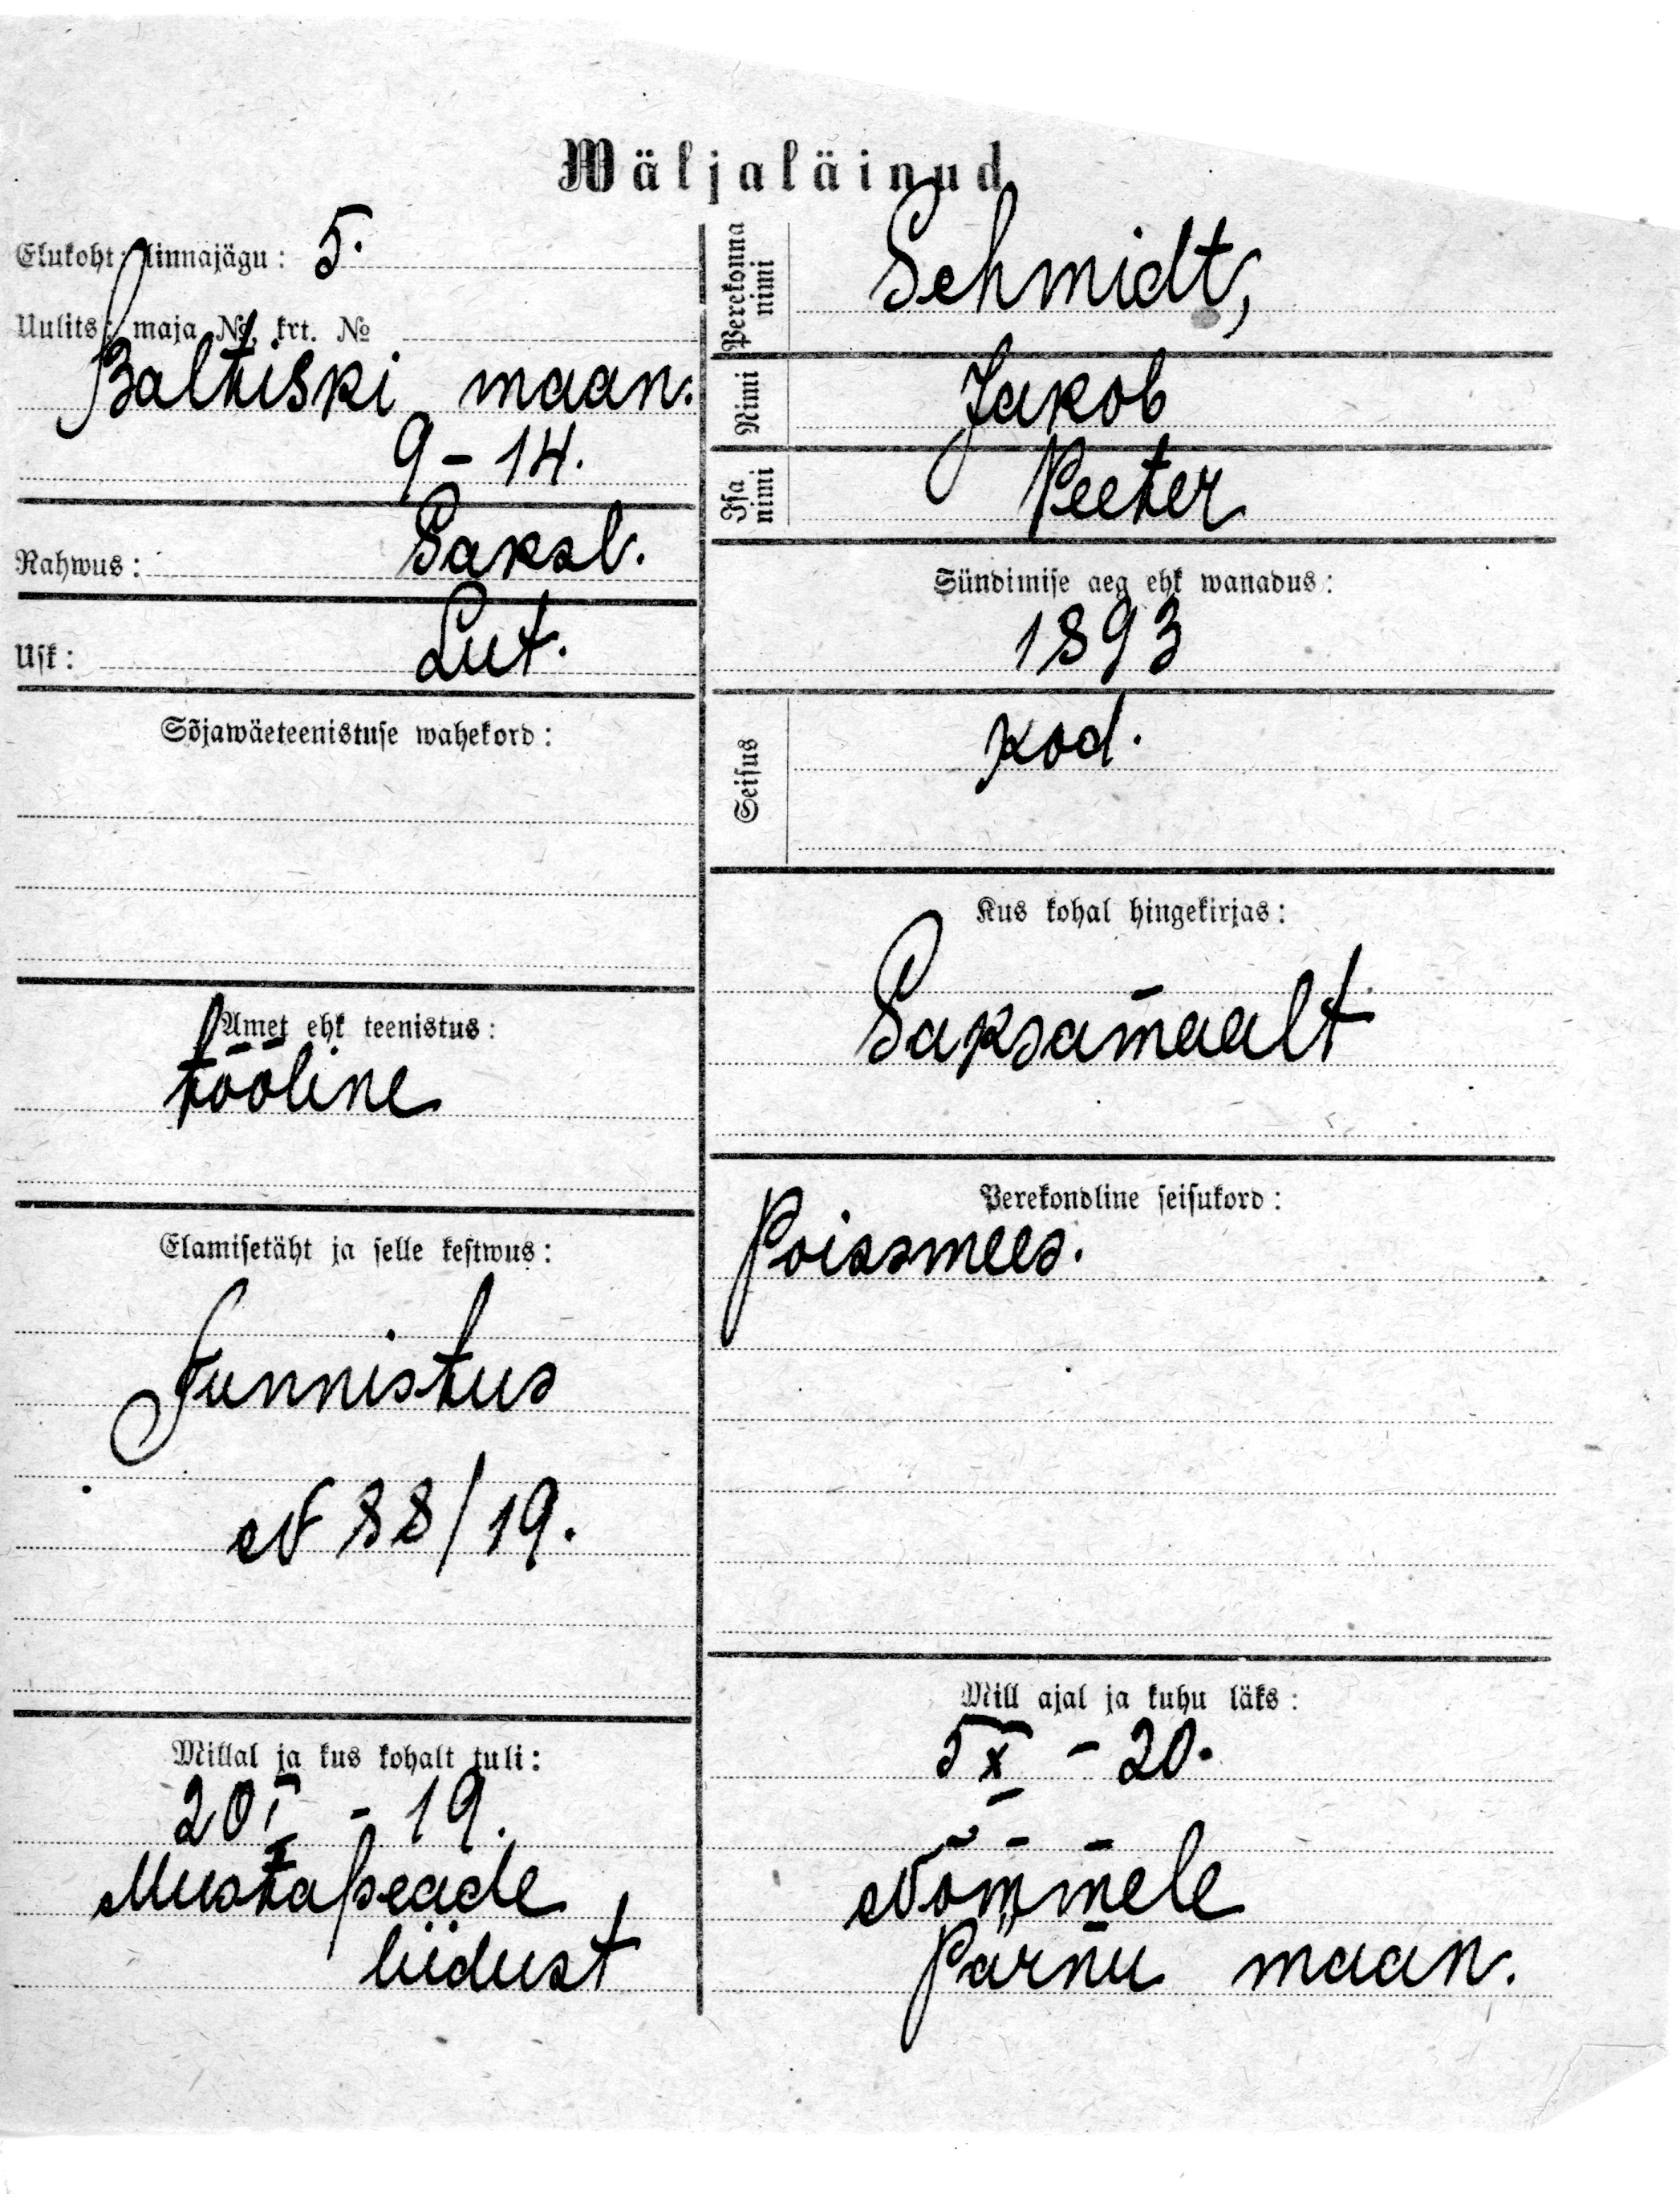 Wäljaläinud
Elukoht: linnajägu: 5.
Uulits: maja №, krt. №
Baltiski maan.
9-14.
Rahwus: Saksl.
Usk: Lut.
Sõjawäeteenistuse wahekord:
Amet ehk teenistus:
tööline
Elamisetäht ja selle kestwus:
Tunnistus
N 88/19.
Millal ja kus kohalt tuli:
20 I - 19.
Mustapeade
liidust
Perekonna nimi Schmidt,
Nimi Jakob
Isa nimi Peeter
Sündimise aeg ehk wanadus:
1893
Seisus kod.
Kus kohal hingekirjas:
Saksamaalt
Perekondline seisukord:
Poissmees.
Mill ajal ja kuhu läks:
5 X - 20.
Nõmmele
Pärnu maan.